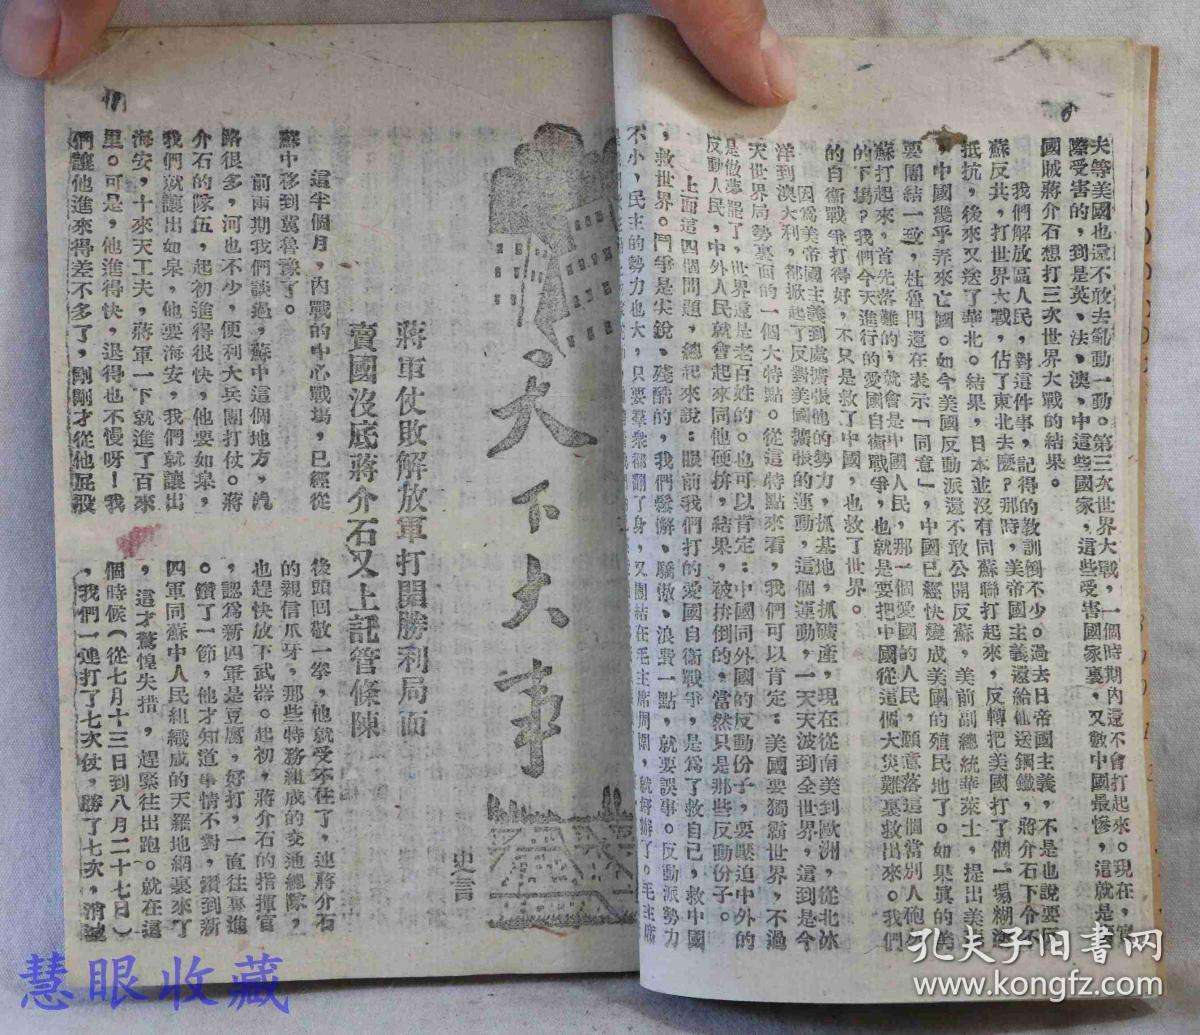 6
夫等美國也還不敢去亂動一動。第三次世界大戰，一個時期內還不會打起來。現在，實
際受害的，到是英、法、澳、中這些國家，這些受害國家裏，又數中國最慘，這就是
國賊蔣介石想打三次世界大戰的結果。
我們解放區人民，對這件事，記得的教訓倒不少。過去日帝國主義，不是也說要反
蘇反共，打世界大戰，佔了東北去麼？那時，美帝國主義還給他送鋼鐵，蔣介石下令不
抵抗，後來又送了華北。結果，日本並沒有同蘇聯打起來，反轉把美國打了個一塌糊塗
，中國幾乎弄來亡國。如今美國反動派還不敢公開反蘇，美前副總統華萊士，提出美蘇
要團結一致，杜魯門還在表示「同意」，中國已經快變成美國的殖民地了。如果真的美
蘇打起來，首先落難的，就會是中國人民，那一個愛國的人民，願意落這個當別人砲灰
的下場？我們今天進行的愛國自衛戰爭，也就是要把中國從這個大災難裏救出來。我們
的自衛戰爭打得好，不只是救了中國，也救了世界。
因爲美帝國主義到處擴張他的勢力，抓基地，抓礦產，現在從南美到歐洲，從北冰
洋到澳大利，都掀起了反對美國擴張的運動，這個運動，一天天波到全世界，這到是今
天世界局勢裏面的一個大特點。從這特點來看，我們可以肯定：美國要獨霸世界，不過
是做夢罷了，世界還是老百姓的。也可以肯定：中國同外國的反動份子，要壓迫中外的
反動人民，中外人民就會起來同他硬拚，結果，被拚倒的，當然只是那些反動份子。
上面這四個問題，總起來說：眼前我們打的愛國自衛戰爭，是爲了救自己，救中國
，救世界。鬥爭是尖銳、殘酷的，我們鬆懈、驕傲、浪費一點，就要誤事。反動派勢力
不小，民主的勢力也大，只要羣衆都翻了身，又團結在毛主席周圍，就好辦了。毛主席
天下大事
史言
蔣軍仗敗解放軍打開勝利局面
賣國沒底蔣介石又上託管條陳
這半個月，內戰的中心戰場，已經從
蘇中移到冀魯豫了。
前兩期我們談過，蘇中這個地方，汽
路很多，河也不少，便利大兵團打仗。蔣
介石的隊伍，起初進得很快，他要如皋，
我們就讓出如皋，他要海安，我們就讓出
海安，十來天工夫，蔣軍一下就進了百來
里。可是，他進得快，退得也不慢呀！我
們讓他進來得差不多了，剛剛才從他屁股
後頭回敬一拳，他就受不住了，連蔣介石
的親信爪牙，那些特務組成的交通總隊，
也趕快放下武器。起初，蔣介石的指揮官
，認爲新四軍是豆腐，好打，一直往裏進
。鑽了一節，他才知道事情不對，鑽到新
四軍同蘇中人民組織成的天羅地網裏來了
，這才驚惶失措，趕緊往出跑。就在這
個時候（從七月十三日到八月二十七日）
，我們一連打了七次仗，勝了七次，消滅
慧眼收藏
孔夫子旧书网
www.kongfz.com